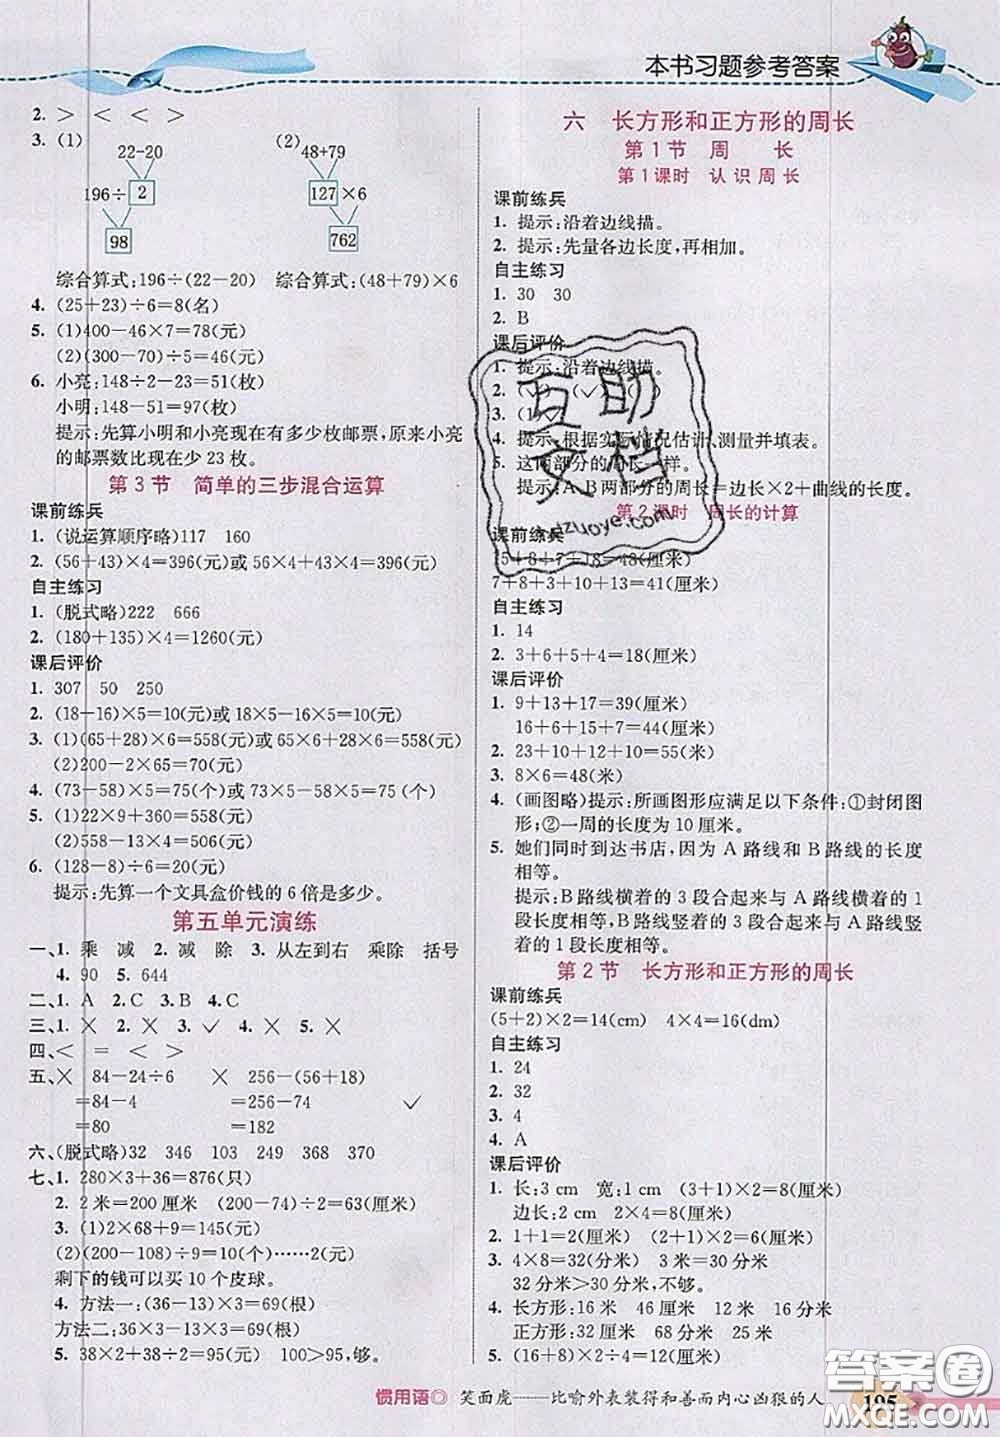 本书习题参考答案
2. ＞ ＜ ＜ ＞
3. (1) 22-20 (2) 48+79
196÷ 2 127 ×6
98 762
综合算式:196÷(22－20) 综合算式:(48+79)×6
4. (25+23)÷6=8(名)
5. (1)400－46×7=78(元)
(2)(300－70)÷5=46(元)
6. 小亮:148÷2－23=51(枚)
小明:148－51=97(枚)
提示:先算小明和小亮现在有多少枚邮票,原来小亮
的邮票数比现在少 23 枚。
第 3 节 简单的三步混合运算
课前练兵
1. (说运算顺序略)117 160
2. (56+43)×4=396(元)或 56×4+43×4=396(元)
自主练习
1. (脱式略)222 666
2. (180+135)×4=1260(元)
课后评价
1. 307 50 250
2. (18－16)×5=10(元)或 18×5－16×5=10(元)
3. (1)(65+28)×6=558(元)或 65×6+28×6=558(元)
(2)200－2×65=70(元)
4. (73－58)×5=75(个)或 73×5－58×5=75(个)
5. (1)22×9+360=558(元)
(2)558－13×4=506(元)
6. (128－8)÷6=20(元)
提示:先算一个文具盒价钱的 6 倍是多少。
第五单元演练
一、1. 乘 减 2. 减 除 3. 从左到右 乘除 括号
4. 90 5. 644
二、1. A 2. C 3. B 4. C
三、1. × 2. × 3. ✓ 4. × 5. ×
四、＜ = ＜ ＞
五、× 84－24÷6 × 256－(56+18)
=84－4 =256－74 ✓
=80 =182
六、(脱式略)32 346 103 249 368 370
七、1. 280×3+36=876(只)
2. 2 米=200 厘米 (200－74)÷2=63(厘米)
3. (1)2×68+9=145(元)
(2)(200－108)÷9=10(个)……2(元)
剩下的钱可以买 10 个皮球。
4. 方法一:(36－13)×3=69(根)
方法二:36×3－13×3=69(根)
5. 38×2+38÷2=95(元) 100＞95,够。
六 长方形和正方形的周长
第 1 节 周 长
第 1 课时 认 识 周 长
课前练兵
1. 提示:沿着边线描。
2. 提示:先量各边长度,再相加。
自主练习
1. 30 30
2. B
课后评价
1. 提示:沿着边线描。
2.
3.
4. 提示:根据实际情况估计、测量并填表。
5. 这两部分的周长一样。
提示:A、B 两部分的周长=边长×2+曲线的长度。
第 2 课时 周长的计算
课前练兵
7+8+3+10+13=41(厘米)
自主练习
1. 14
2. 3+6+5+4=18(厘米)
课后评价
1. 9+13+17=39(厘米)
16+6+15+7=44(厘米)
2. 23+10+12+10=55(厘米)
3. 8×6=48(米)
4. (画图略)提示:所画图形应满足以下条件:①封闭图
形;②一周的长度为 10 厘米。
5. 她们同时到达书店,因为 A 路线和 B 路线的长度
相等。
提示:B 路线横着的 3 段合起来与 A 路线横着的 1
段长度相等,B 路线竖着的 3 段合起来与 A 路线竖
着的 1 段长度相等。
第 2 节 长方形和正方形的周长
课前练兵
(5+2)×2=14(cm) 4×4=16(dm)
自主练习
1. 24
2. 32
3. 4
4. A
课后评价
1. 长:3 cm 宽:1 cm (3+1)×2=8(厘米)
边长:2 cm 2×4=8(厘米)
2. 1+1=2(厘米) (2+1)×2=6(厘米)
3. 4×8=32(分米) 3 米=30 分米
32 分米＞30 分米,不够。
4. 长方形:16 米 46 厘米 12 米 16 分米
正方形:32 厘米 68 分米 25 米
5. (16+8)÷2=12(厘米)
互助
文档
惯用语◎ 笑面虎——比喻外表装得和善而内心凶狠的人
105
答案圈
MXQE.COM